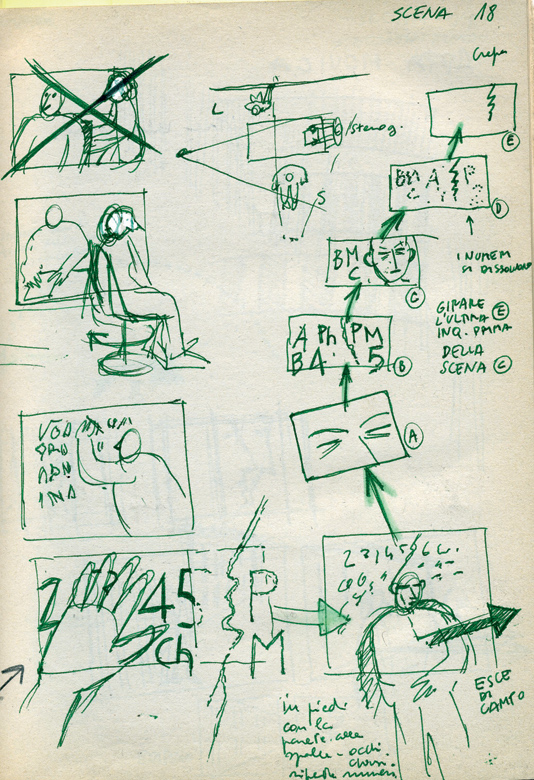 SCENA 18
Crepa
L
/stenog.
S
E
BM A P
C
D
I NUMERI
SI DISSOLVONO
BM
C
C
GIRARE
L'ULTIMA E
INQ. PRIMA
DELLA
SCENA C
A Ph PM
B 4 5
B
A
VOD
ORD
ADN
INA
2 3 4 5 6
45 P
Ch M
ESCE
DI
CAMPO
in piedi
con la
parete alle
spalle - occhi
chiusi
ripete numeri